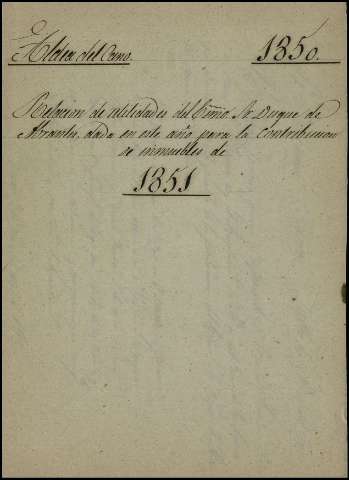 Aldea del Cano. 1850.
Relacion de utilidades del Excmo. Sr. Duque de
Abrantes, dada en este año para la Contribucion
de inmuebles de
1851